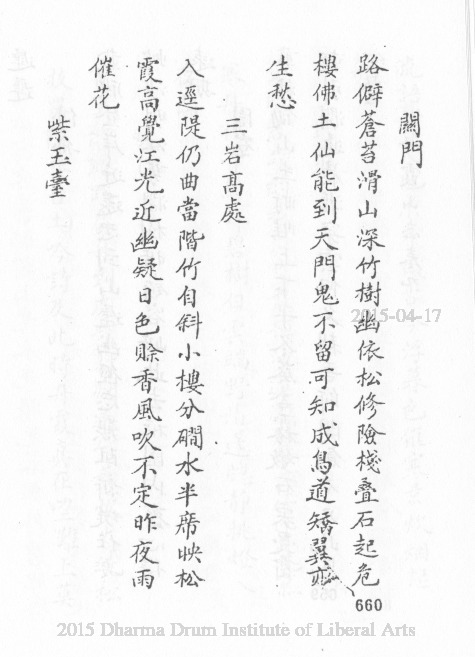 關門
路僻蒼苔滑山深竹樹幽依松修險棧叠石起危
樓佛土仙能到天門鬼不留可知成鳥道矯翼亦
生愁
三岩髙處
入逕隄仍曲當階竹自斜小樓分磵水半席映松
霞高覺江光近幽疑日色賒香風吹不定昨夜雨
催花
紫玉臺
2015-04-17
660
2015 Dharma Drum Institute of Liberal Arts